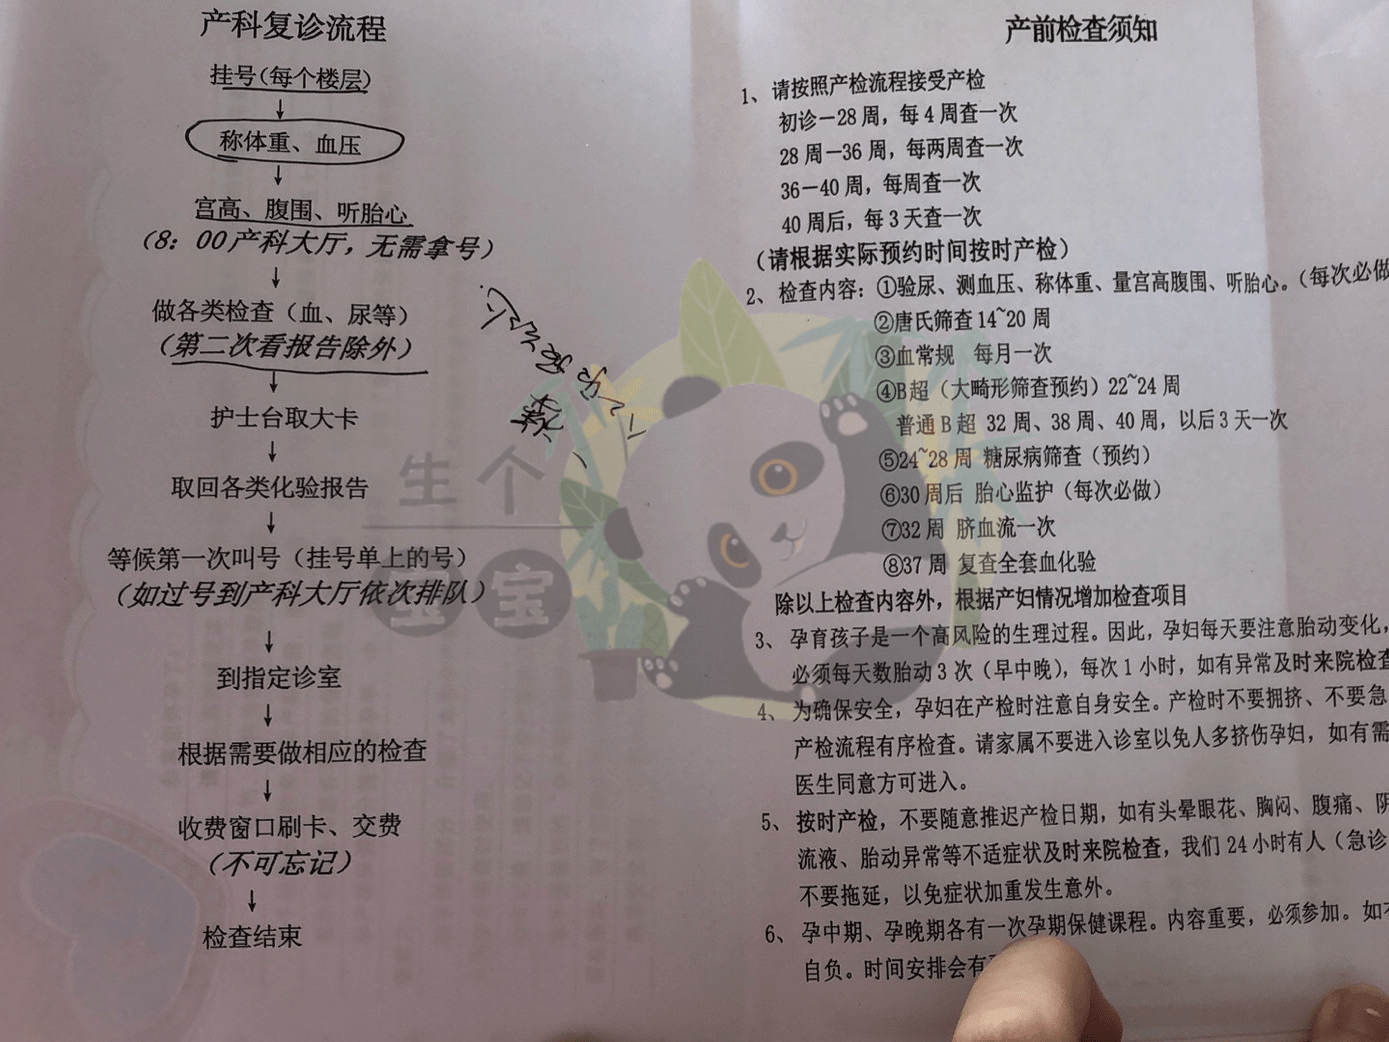 产科复诊流程
挂号(每个楼层)
↓
称体重、血压
↓
宫高、腹围、听胎心
(8：00产科大厅，无需拿号)
↓
做各类检查（血、尿等）
(第二次看报告除外)
↓
护士台取大卡
↓
取回各类化验报告
↓
等候第一次叫号（挂号单上的号）
(如过号到产科大厅依次排队)
↓
到指定诊室
↓
根据需要做相应的检查
↓
收费窗口刷卡、交费
(不可忘记)
↓
检查结束
生个
宝
产前检查须知
1、请按照产检流程接受产检
初诊－28周，每4周查一次
28周－36周，每两周查一次
36－40周，每周查一次
40周后，每3天查一次
（请根据实际预约时间按时产检）
2、检查内容：①验尿、测血压、称体重、量宫高腹围、听胎心。（每次必做
②唐氏筛查14~20周
③血常规 每月一次
④B超（大畸形筛查预约）22~24周
普通B超 32周、38周、40周，以后3天一次
⑤24~28周 糖尿病筛查（预约）
⑥30周后 胎心监护（每次必做）
⑦32周 脐血流一次
⑧37周 复查全套血化验
除以上检查内容外，根据产妇情况增加检查项目
3、孕育孩子是一个高风险的生理过程。因此，孕妇每天要注意胎动变化，
必须每天数胎动3次（早中晚），每次1小时，如有异常及时来院检查
4、为确保安全，孕妇在产检时注意自身安全。产检时不要拥挤、不要急
产检流程有序检查。请家属不要进入诊室以免人多挤伤孕妇，如有需
医生同意方可进入。
5、按时产检，不要随意推迟产检日期，如有头晕眼花、胸闷、腹痛、阴
流液、胎动异常等不适症状及时来院检查，我们24小时有人（急诊
不要拖延，以免症状加重发生意外。
6、孕中期、孕晚期各有一次孕期保健课程。内容重要，必须参加。如
自负。时间安排会有